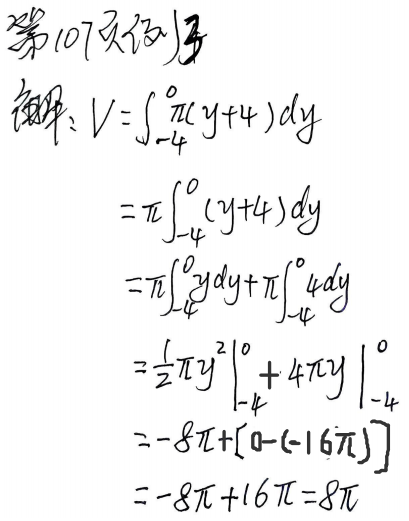 第107页例3
解: V = ∫₋₄⁰ π(y+4)dy
= π∫₋₄⁰ (y+4)dy
= π∫₋₄⁰ ydy + π∫₋₄⁰ 4dy
= ½πy²|₋₄⁰ + 4πy|₋₄⁰
= -8π+[0-(-16π)]
= -8π+16π=8π